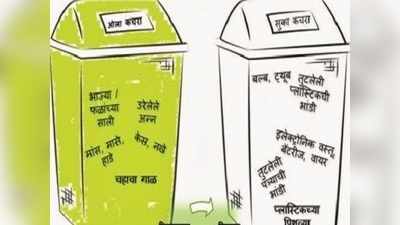 ओला कचरा
भाज्या /
फळांच्या
साली
उरेलेले
अन्न
मांस, मासे,
हाडे
केस, नखे
चहाचा गाळ
सुका कचरा
बल्ब, ट्यूब
तुटलेली
प्लास्टिकची
भांडी
इलेक्ट्रॉनिक वस्तू,
बॅटरीज, वायर
तुटलेली
पत्र्याची
भांडी
प्लास्टिकच्या
पिशव्या